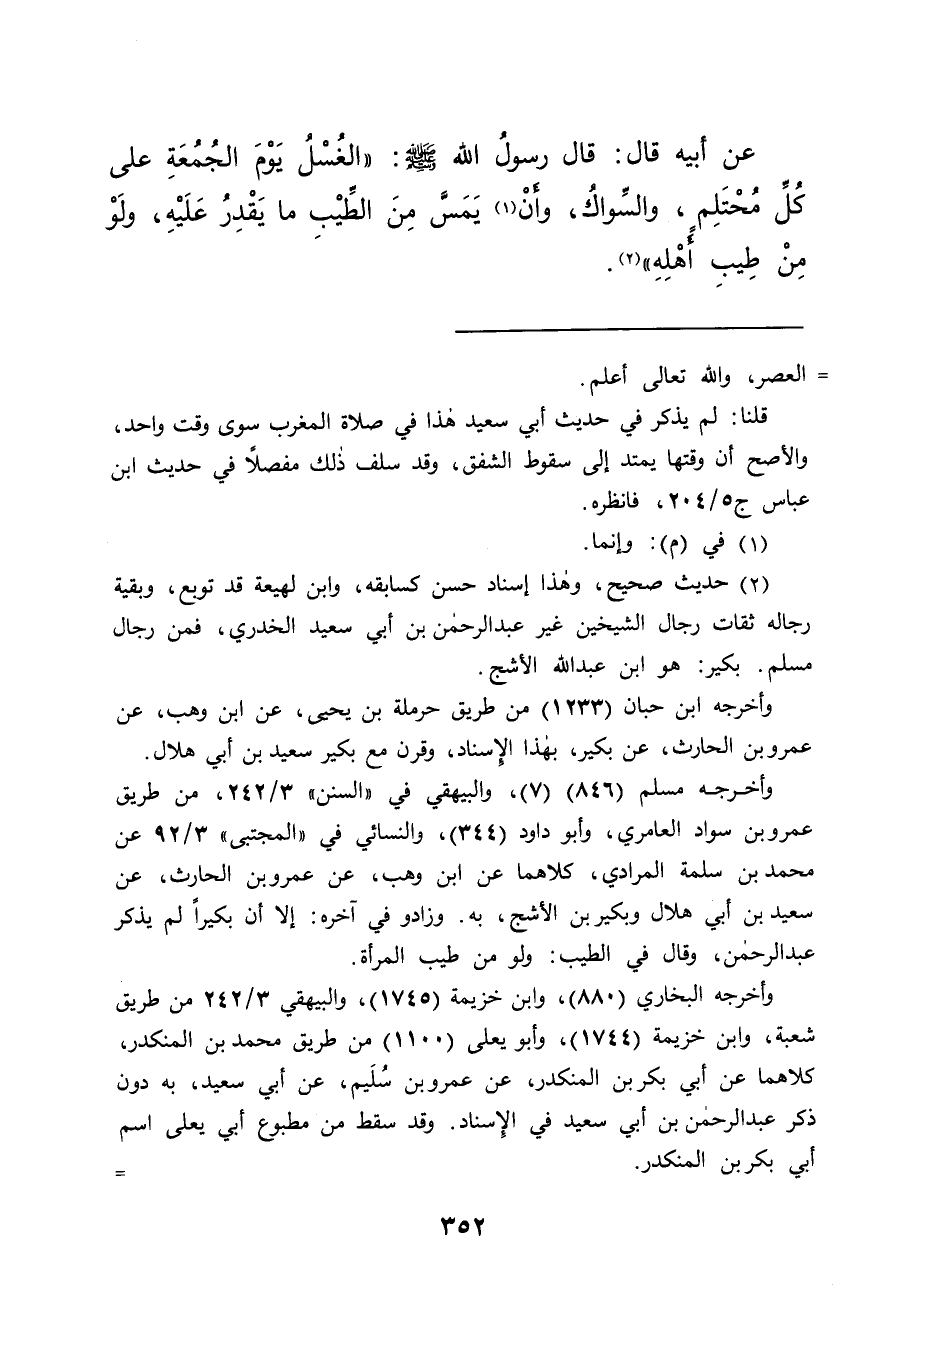 عن أبيه قال: قال رسولُ الله ﷺ: «الغُسْلُ يَوْمَ الجُمُعَةِ على
كُلِّ مُحْتَلِمٍ، والسِّواكُ، وأَنْ(١) يَمَسَّ مِنَ الطِّيْبِ ما يَقْدِرُ عَلَيْهِ، ولَوْ
مِنْ طِيبِ أَهْلِهِ»(٢).
= العصر، والله تعالى أعلم.
قلنا: لم يذكر في حديث أبي سعيد هٰذا في صلاة المغرب سوى وقت واحد،
والأصح أن وقتها يمتد إلى سقوط الشفق، وقد سلف ذٰلك مفصلاً في حديث ابن
عباس ج٢٠٤/٥، فانظره.
(١) في (م): وإنما.
(٢) حديث صحيح، وهٰذا إسناد حسن كسابقه، وابن لهيعة قد توبع، وبقية
رجاله ثقات رجال الشيخين غير عبدالرحمٰن بن أبي سعيد الخدري، فمن رجال
مسلم. بكير: هو ابن عبدالله الأشج.
وأخرجه ابن حبان (١٢٣٣) من طريق حرملة بن يحيى، عن ابن وهب، عن
عمرو بن الحارث، عن بكير، بهٰذا الإسناد، وقرن مع بكير سعيد بن أبي هلال.
وأخرجه مسلم (٨٤٦) (٧)، والبيهقي في «السنن» ٢٤٢/٣، من طريق
عمرو بن سواد العامري، وأبو داود (٣٤٤)، والنسائي في «المجتبى» ٩٢/٣ عن
محمد بن سلمة المرادي، كلاهما عن ابن وهب، عن عمرو بن الحارث، عن
سعيد بن أبي هلال وبكير بن الأشج، به. وزادو في آخره: إلا أن بكيراً لم يذكر
عبدالرحمٰن، وقال في الطيب: ولو من طيب المرأة.
وأخرجه البخاري (٨٨٠)، وابن خزيمة (١٧٤٥)، والبيهقي ٢٤٢/٣ من طريق
شعبة، وابن خزيمة (١٧٤٤)، وأبو يعلى (١١٠٠) من طريق محمد بن المنكدر،
كلاهما عن أبي بكر بن المنكدر، عن عمرو بن سُلَيم، عن أبي سعيد، به دون
ذكر عبدالرحمٰن بن أبي سعيد في الإسناد. وقد سقط من مطبوع أبي يعلى اسم
أبي بكر بن المنكدر. =
٣٥٢